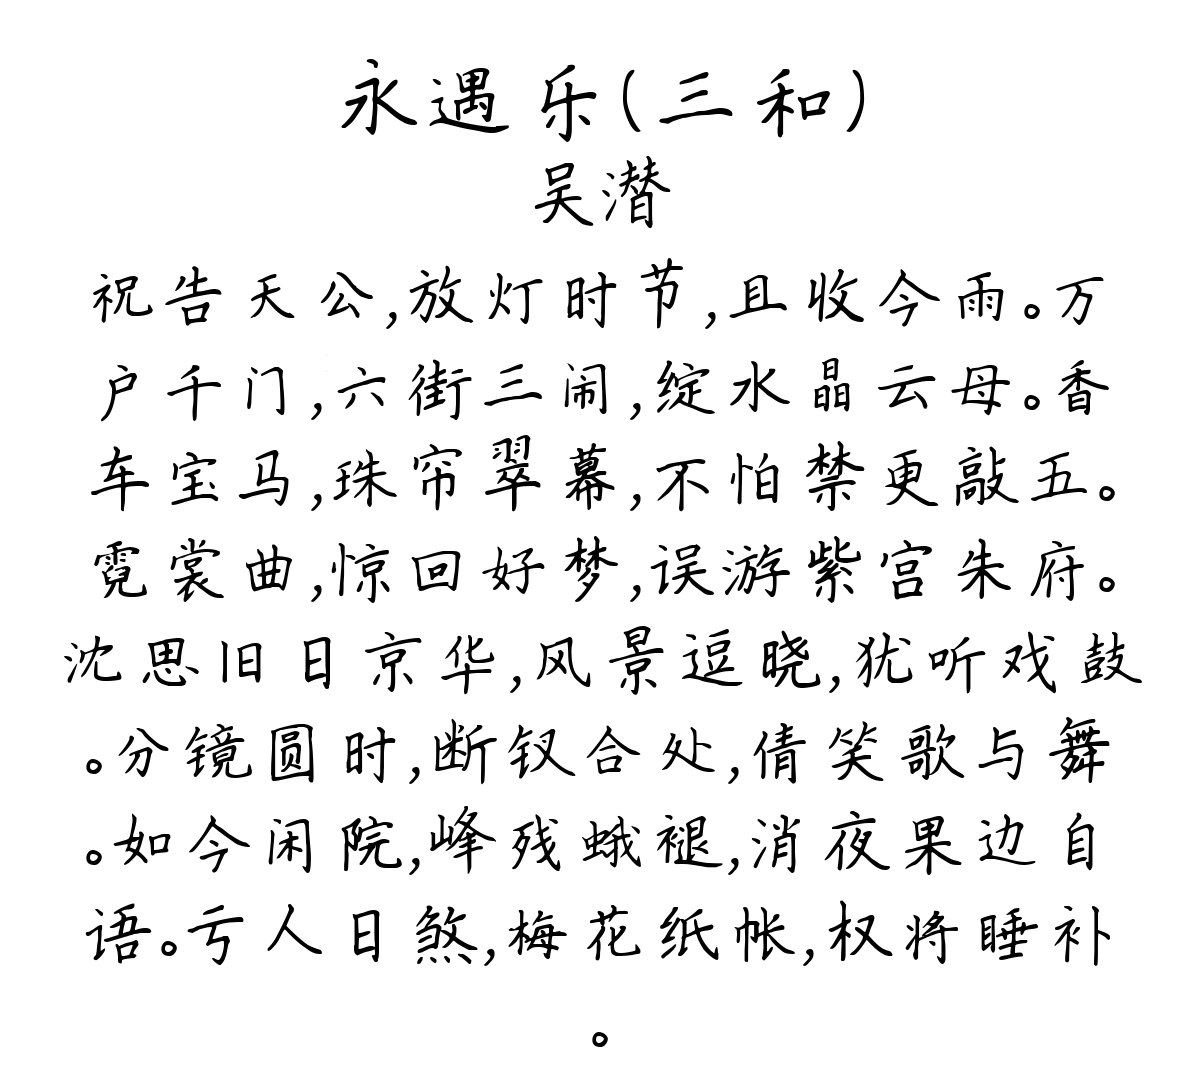 永遇乐(三和)
吴潜
祝告天公,放灯时节,且收今雨。万
户千门,六街三闹,绽水晶云母。香
车宝马,珠帘翠幕,不怕禁更敲五。
霓裳曲,惊回好梦,误游紫宫朱府。
沈思旧日京华,风景逗晓,犹听戏鼓
。分镜圆时,断钗合处,倩笑歌与舞
。如今闲院,峰残蛾褪,消夜果边自
语。亏人日煞,梅花纸帐,权将睡补
。